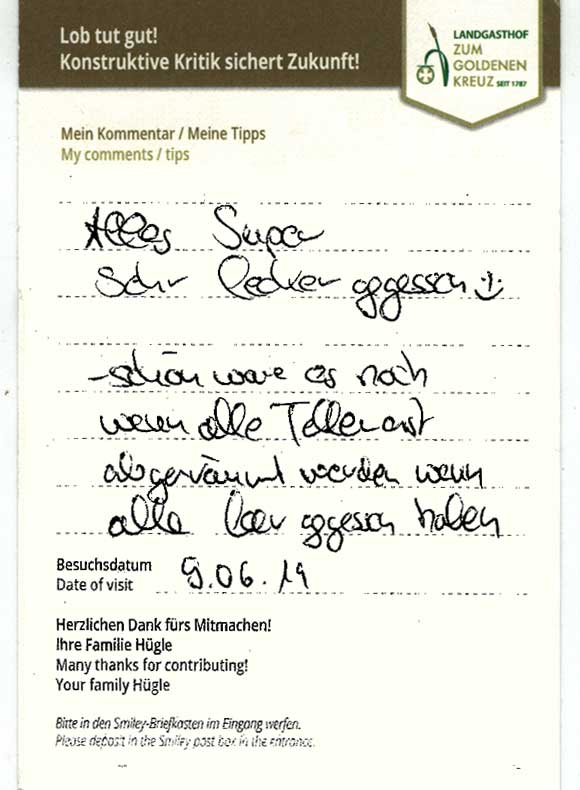 Lob tut gut!
Konstruktive Kritik sichert Zukunft!
LANDGASTHOF
ZUM
GOLDENEN
KREUZ SEIT 1787
Mein Kommentar / Meine Tipps
My comments / tips
Alles Super
Sehr lecker gegessen :)
- schön wäre es noch
wenn alle Teller erst
abgeräumt werden wenn
alle leer gegessen haben
Besuchsdatum
Date of visit
9.06.19
Herzlichen Dank fürs Mitmachen!
Ihre Familie Hügle
Many thanks for contributing!
Your family Hügle
Bitte in den Smiley-Briefkasten im Eingang werfen.
Please deposit in the Smiley post box in the entrance.